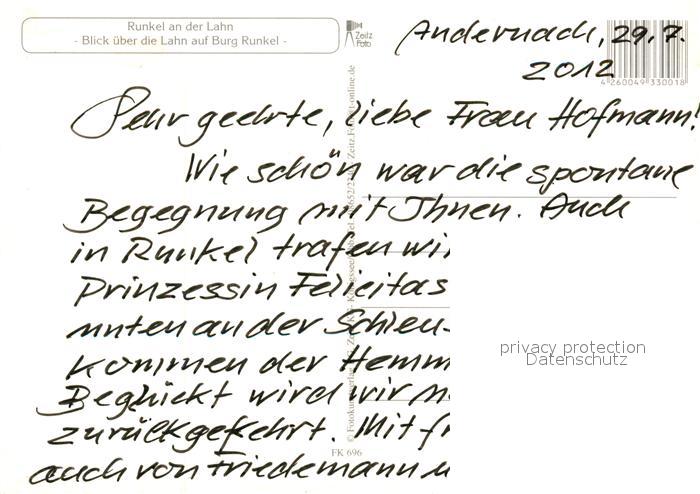 Runkel an der Lahn
- Blick über die Lahn auf Burg Runkel -
Zeitz
Foto
Andernach, 29.7.
2012
4 260049 330018
Sehr geehrte, liebe Frau Hofmann!
Wie schön war die spontane
Begegnung mit Ihnen. Auch
in Runkel trafen wi
Prinzessin Felicitas
unten an der Schleu-
kommen der Hemm
Beglückt wird wir
zurückgekehrt. Mit f
auch von Friedemann u
FK 696
privacy protection
Datenschutz